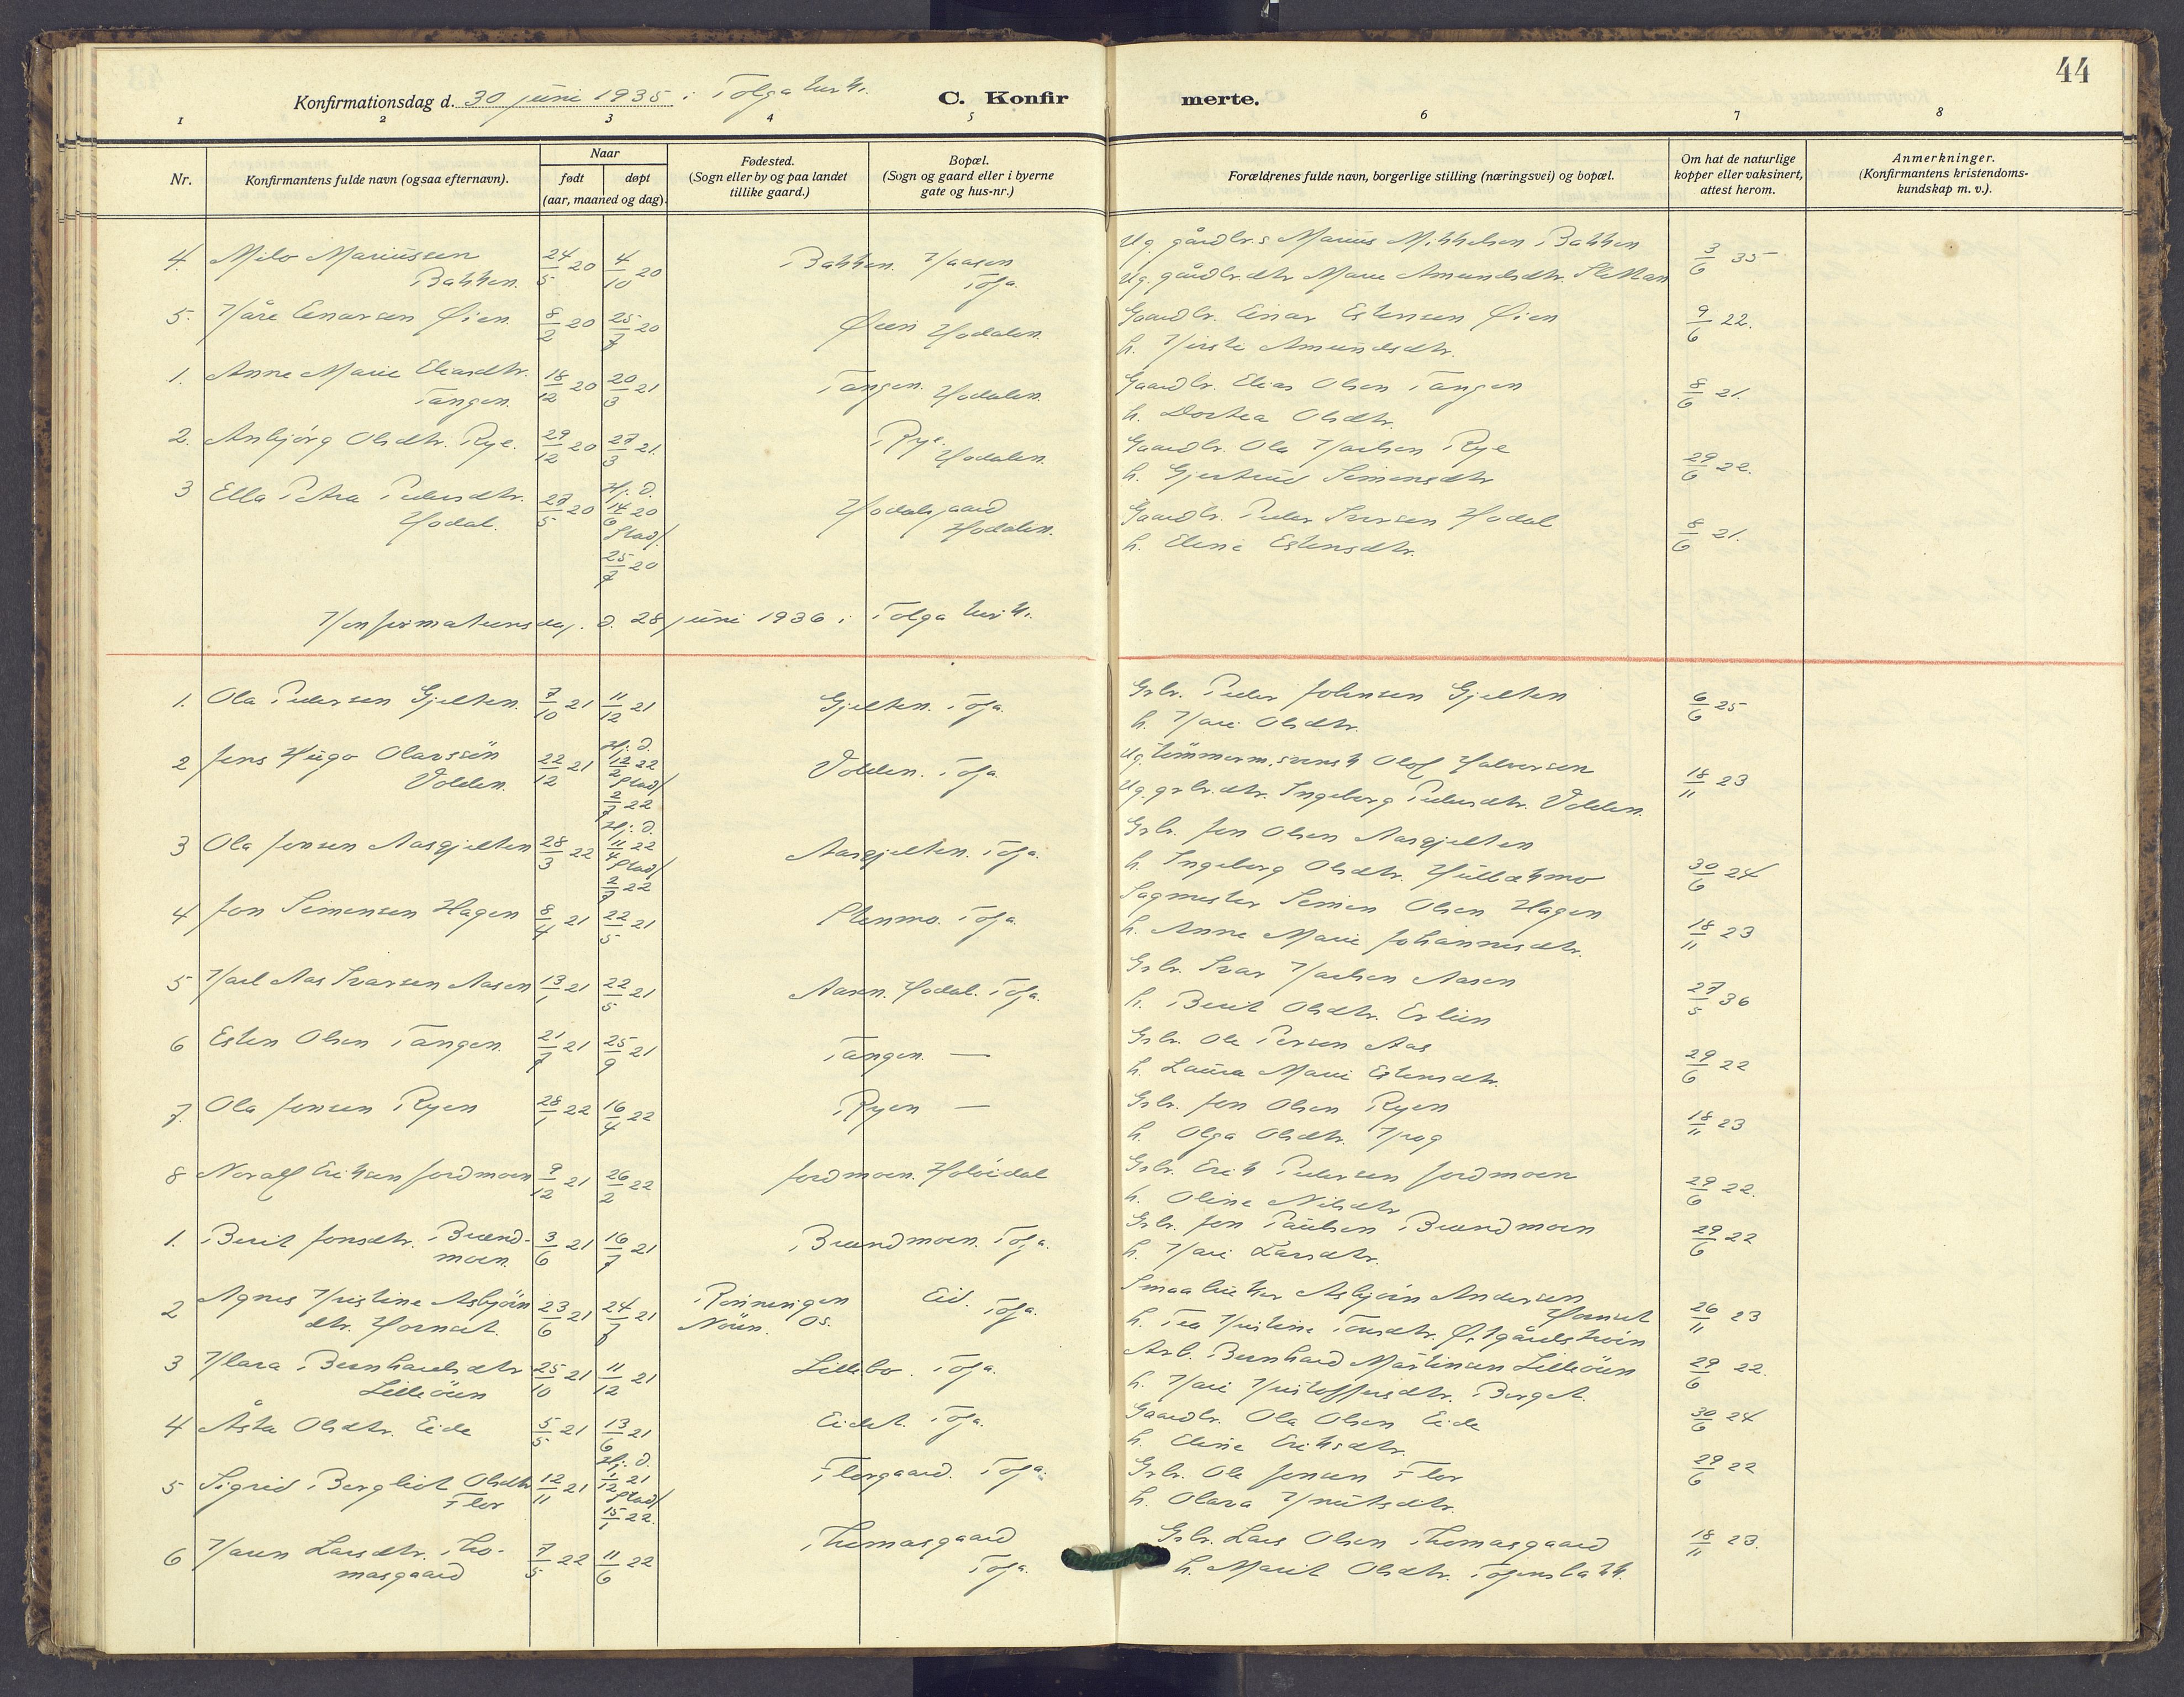 44
Konfirmationsdag d. 30 juni 1935 i Tolga kirk.
C. Konfir merte.
1 2 3 4 5 6 7 8
Nr.
Konfirmantens fulde navn (ogsaa efternavn).
Naar
født
døpt
(aar, maaned og dag).
Fødested.
(Sogn eller by og paa landet
tillike gaard.)
Bopæl.
(Sogn og gaard eller i byerne
gate og hus-nr.)
Forældrenes fulde navn, borgerlige stilling (næringsvei) og bopæl.
Om hat de naturlige
kopper eller vaksinert,
attest herom.
Anmerkninger.
(Konfirmantens kristendoms-
kundskap m. v.).
4. Milo Mariussen 24/5 20 4/10 20 Bakken. Kaasen Ug. gårdbr.s Marius Mikkelsen Bakken 3/6 35
Bakken. Tolga. Ug. gårdbr.dtr Marie Amundsdtr. Sletten
5. Kåre Einarsen Øien. 8/2 20 25/7 20 Øien Hodalen. Gaardbr. Einar Estensen Øien 9/6 22.
h. Kirsti Amundsdtr.
1. Anne Marie Eliasdtr. 18/12 20 20/3 21 Tangen. Hodalen. Gaardbr. Elias Olsen Tangen 8/6 21.
Tangen. h. Dortea Olsdtr.
2. Asbjørg Olsdtr. Rye. 29/12 20 27/3 21. Rye. Hodalen. Gaardbr. Ola Karlsen Rye 29/6 22.
h. Gjertrud Simensdtr
3 Ella Petra Pedersdtr. 27/5 20 Hj. d. 14/6 20 Hodalsgaard Gaardbr. Peder Iversen Hodal 8/6 21.
Hodal. stad/. 25/7 20 Hodalen. h. Eline Estensdtr.
Konfirmationsdag. d. 28 juni 1936 i Tolga kirk.
1. Ola Pedersen Gjelten. 7/10 21 11/12 21 Gjelten. Tolga. Grbr. Peder Johnsen Gjelten 6/6 25
h. Kari Olsdtr.
2 Jens Hugo Olavssön 22/12 21 Hj. d. 12/2 22 Volden. Tolga. Ug. tömmerm. svensk Olof Halvorsen 18/11 23
Volden. stad/ 2/7 22 Ug. grbr.dtr. Ingeborg Pedersdtr. Volden.
3 Ola Jonsen Aasgjelten 28/3 22 Hj. d. 11/4 22 Aasgjelten. Tolga. Grbr. Jon Olsen Aasgjelten 30/6 24
stad/ 2/7 22 h. Ingeborg Olsdtr.
4 Jon Simensen Hagen 8/4 21 22/5 21 Stenmo. Tolga. Sagmester Simen Olsen Hagen 18/11 23
h. Anne Marie Johannesdtr.
5 Karl Aas Ivarsen Aasen 13/1 21 22/5 21 Aasen. Hodal. Tolga. Grbr. Ivar Karlsen Aasen 27/5 36
h. Berit Olsdtr. Erlien
6 Esten Olsen Tangen. 21/7 21 25/9 21 Tangen. — Grbr. Ole Persen Aas 29/6 22
h. Laura Marie Estensdtr.
7. Ola Jonsen Ryen 28/1 22 16/4 22 Ryen — Grbr. Jon Olsen Ryen 18/11 23
h. Olga Olsdtr. Krog
8 Noralf Eriksen Jordmoen 9/12 21 26/2 22 Jordmoen. Holöidal Grbr. Erik Pedersen Jordmoen 29/6 22.
h. Oline Nilsdtr
1. Berit Jonsdtr. Brænd- 3/6 21 16/7 21 Brændmoen. Tolga. Grbr. Jon Paulsen Brændmoen 29/6 22
moen. h. Kari Larsdtr.
2 Agnes Kristine Asbjörn 23/6 21 24/7 21 Rönningen Eid. Tolga. Smaabruker Asbjörn Andersen 26/11 23
dtr. Hornset. Nören. Os. Hornset
h. Tea Kristine Tonsdtr. Østgårdströin
3 Klara Bernhardsdtr 25/10 21 11/12 21 Lillebo. Tolga. Arb. Bernhard Martinsen Lilleöien 29/6 22.
Lilleöien h. Kari Kristoffersdtr. Berget.
4 Åsta Olsdtr. Eide 5/5 21 13/6 21 Eidet. Tolga. Gaardbr. Ola Olsen Eide 30/6 24
h. Eline Eriksdtr.
5 Sigrid Bergliot Olsdtr 12/11 21 Hj. d. 1/12 21 Florgaard. Tolga. Grbr. Ole Jonsen Flor 29/6 22
Flor stad/ 15/1 22. h. Olava Knutsdtr.
6 Karen Larsdtr. Tho- 7/5 22 11/6 22 Thomasgaard Grbr. Lars Olsen Thomasgaard 18/11 23.
masgaard Tolga. h. Marit Olsdtr. Tolgensbakk.